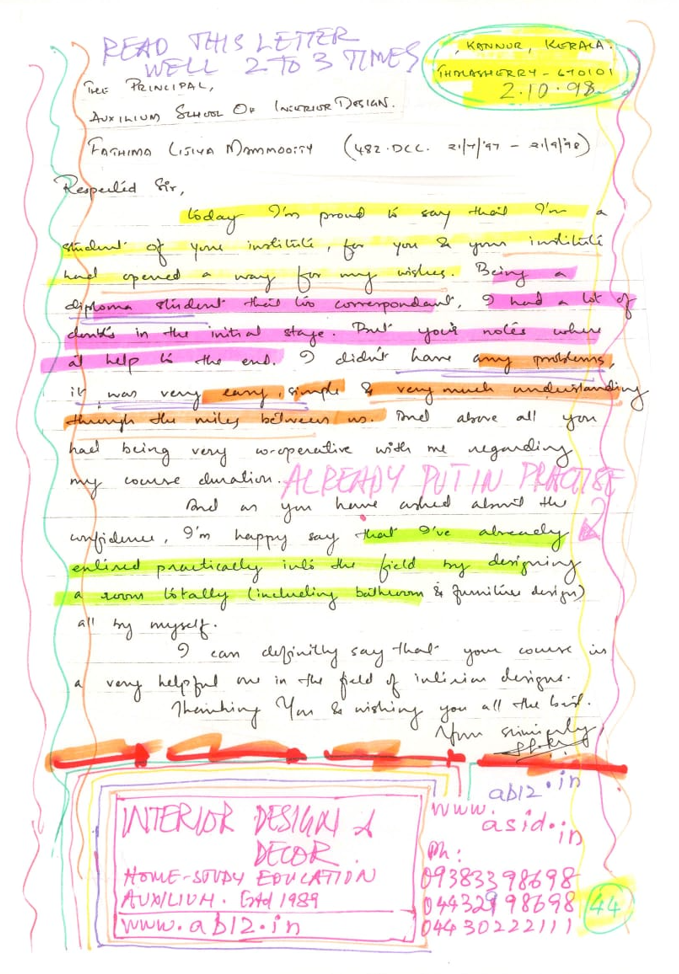 READ THIS LETTER
WELL 2 TO 3 TIMES
KANNUR, KERALA.
THALASHERRY - 670101
2.10.98.
THE PRINCIPAL,
AUXILIUM SCHOOL OF INTERIOR DESIGN.
FATHIMA LISIYA MAMMOOTY (482.DCC. 21/7/'97 - 21/9/'98)
Respected Sir,
today I'm proud to say that I'm a
student of your institute, for you & your institute
had opened a way for my wishes. Being a
diploma student that too correspondant, I had a lot of
doubts in the initial stage. But your notes where
at help to the end. I didn't have any problems,
it was very easy, simple & very much understanding
through the miles between us. And above all you
had being very co-operative with me regarding
my course duration.
ALREADY PUT IN PRACTISE
And as you have asked about the
confidence, I'm happy say that I've already
entired practically into the field by designing
a room totally (including bathroom & furniture design)
all by myself.
I can definitly say that your course is
a very helpful one in the field of interior designs.
Thanking You & wishing you all the best.
Your sincerely
ab12.in
www.
asid.in
INTERIOR DESIGN &
DECOR.
HOME-STUDY EDUCATION
AUXILIUM. Estd 1989
www.ab12.in
Ph:
09383398698
04432998698
044 30222111
44